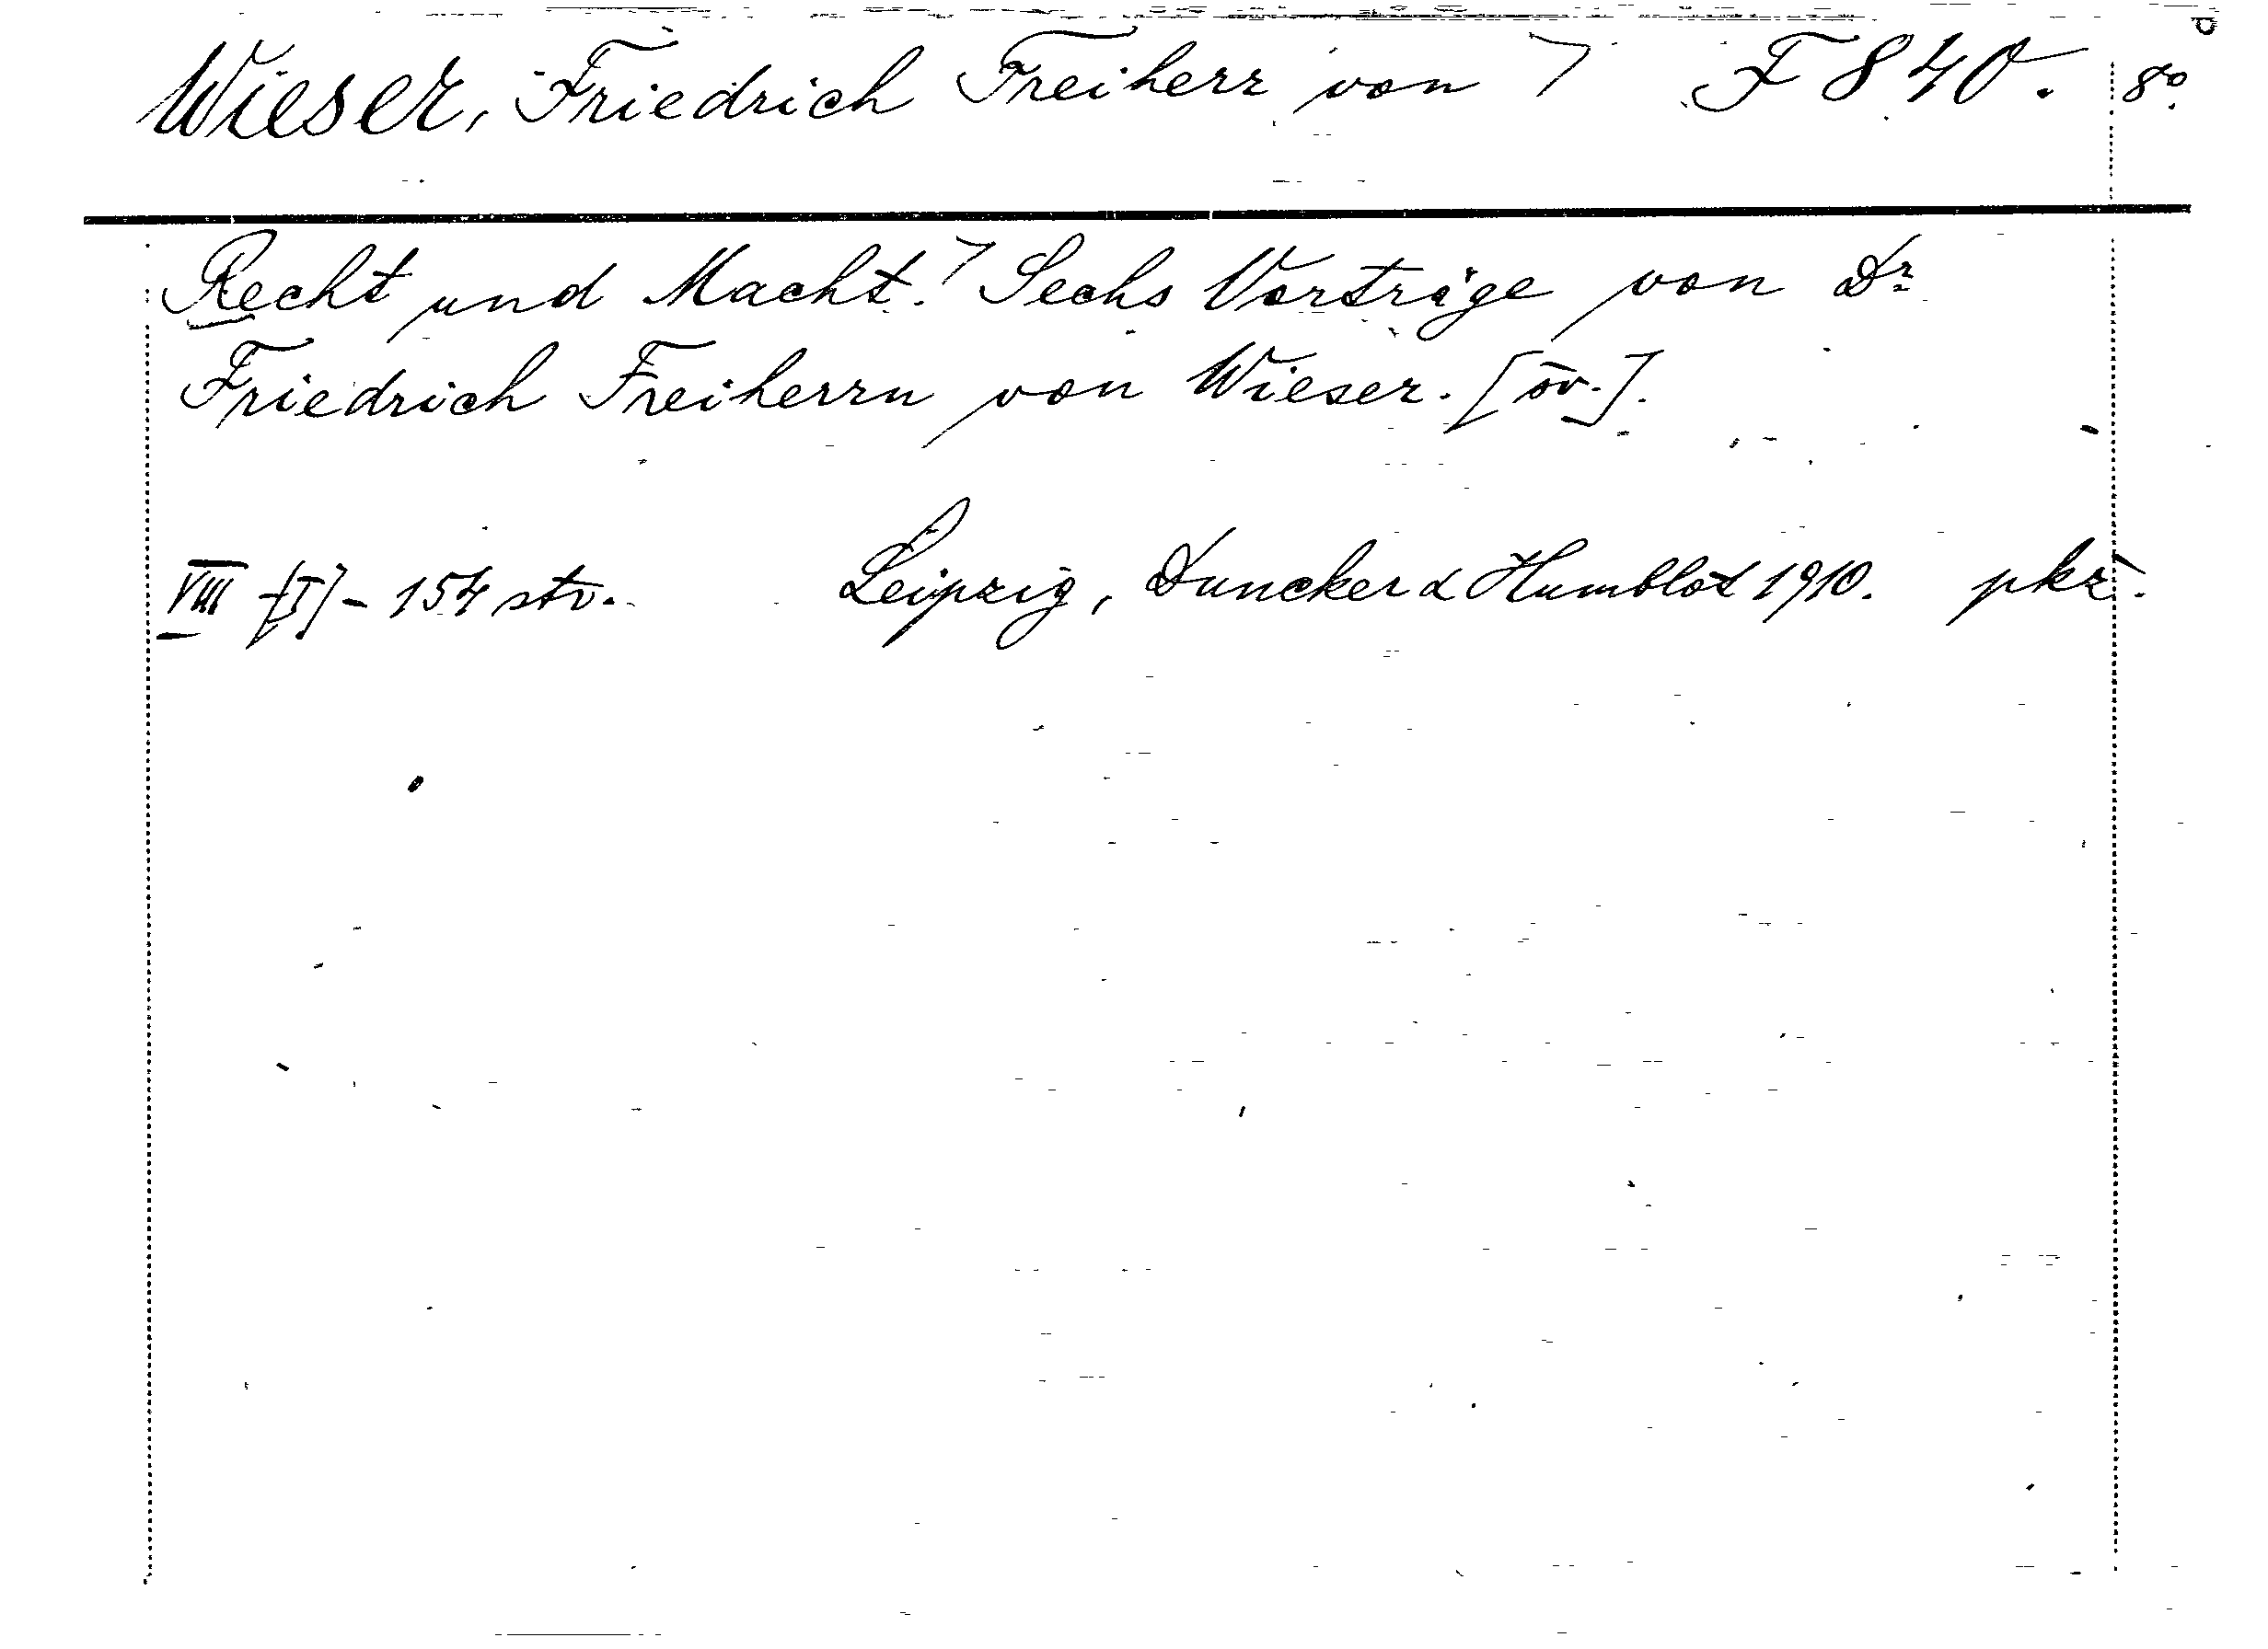 Wieser, Friedrich Freiherr von F 840. 8º
Recht und Macht. Sechs Vorträge von Dr
Friedrich Freiherrn von Wieser. [öv.].
VIII [I] - 154 str. Leipzig, Duncker & Humblot 1910. pkř.